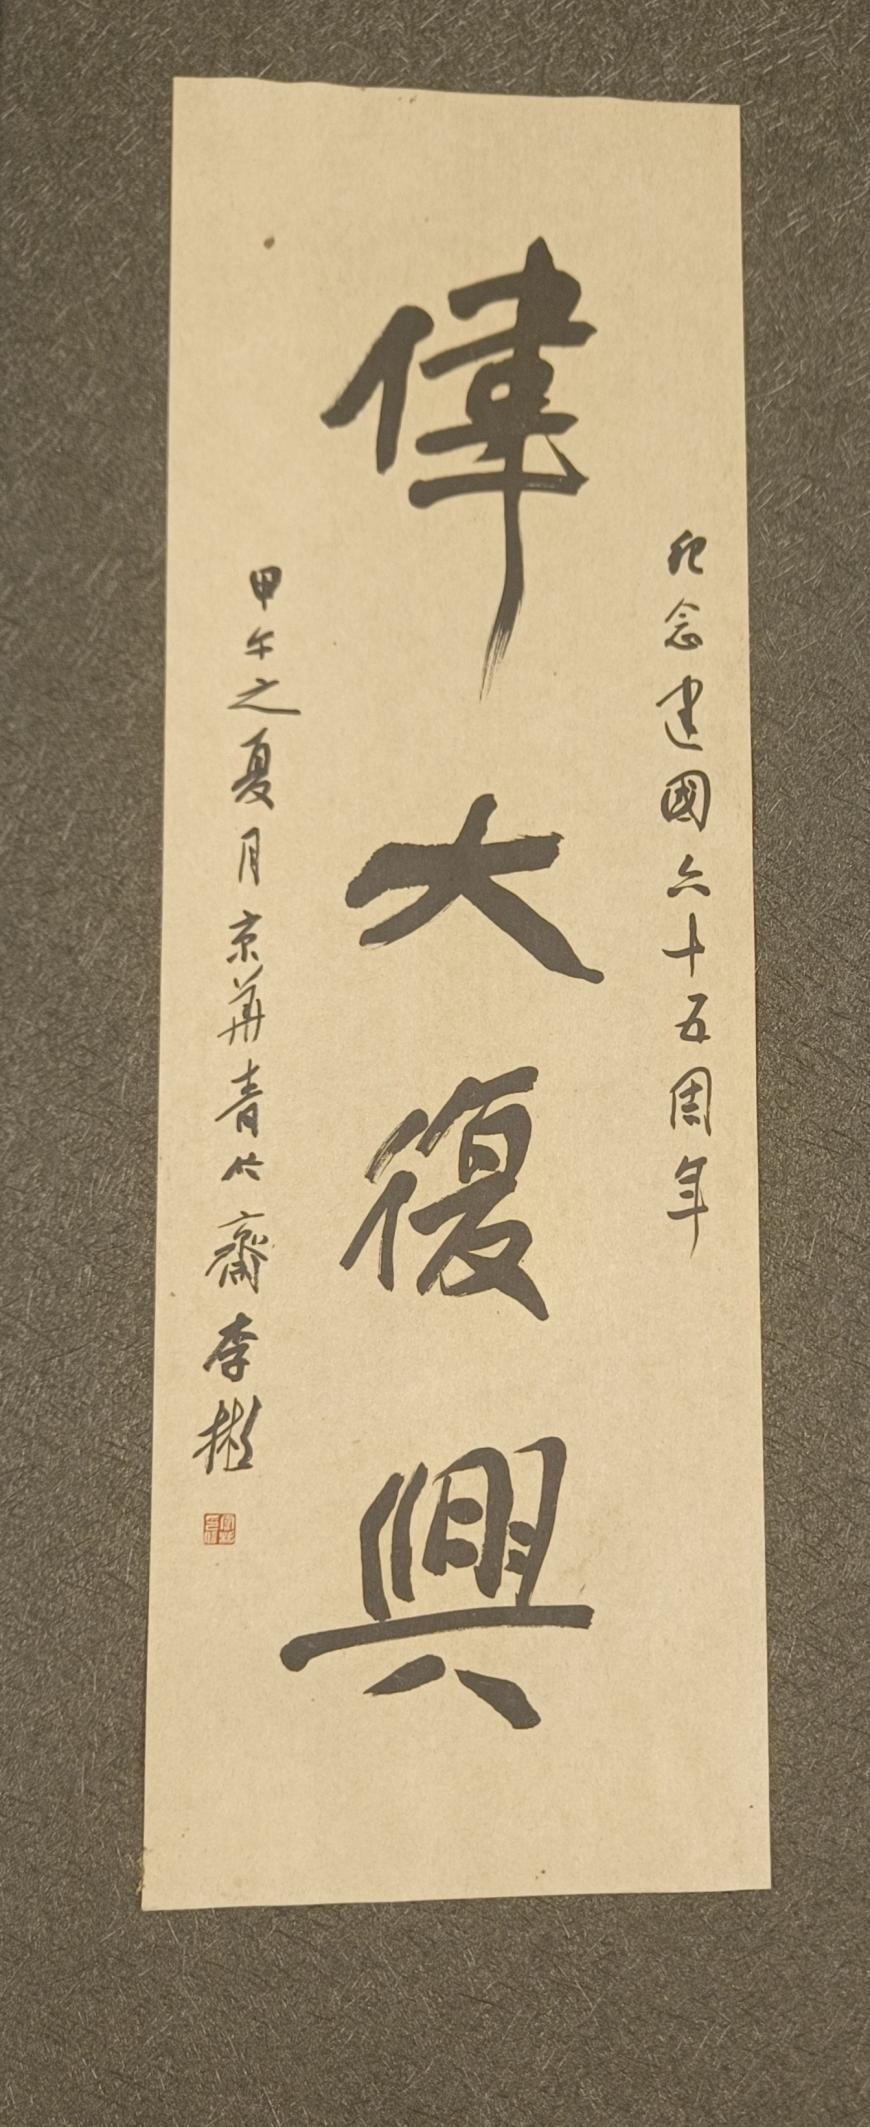 紀念建國六十五周年
偉大復興
甲午之夏月京華青竹齋李彬